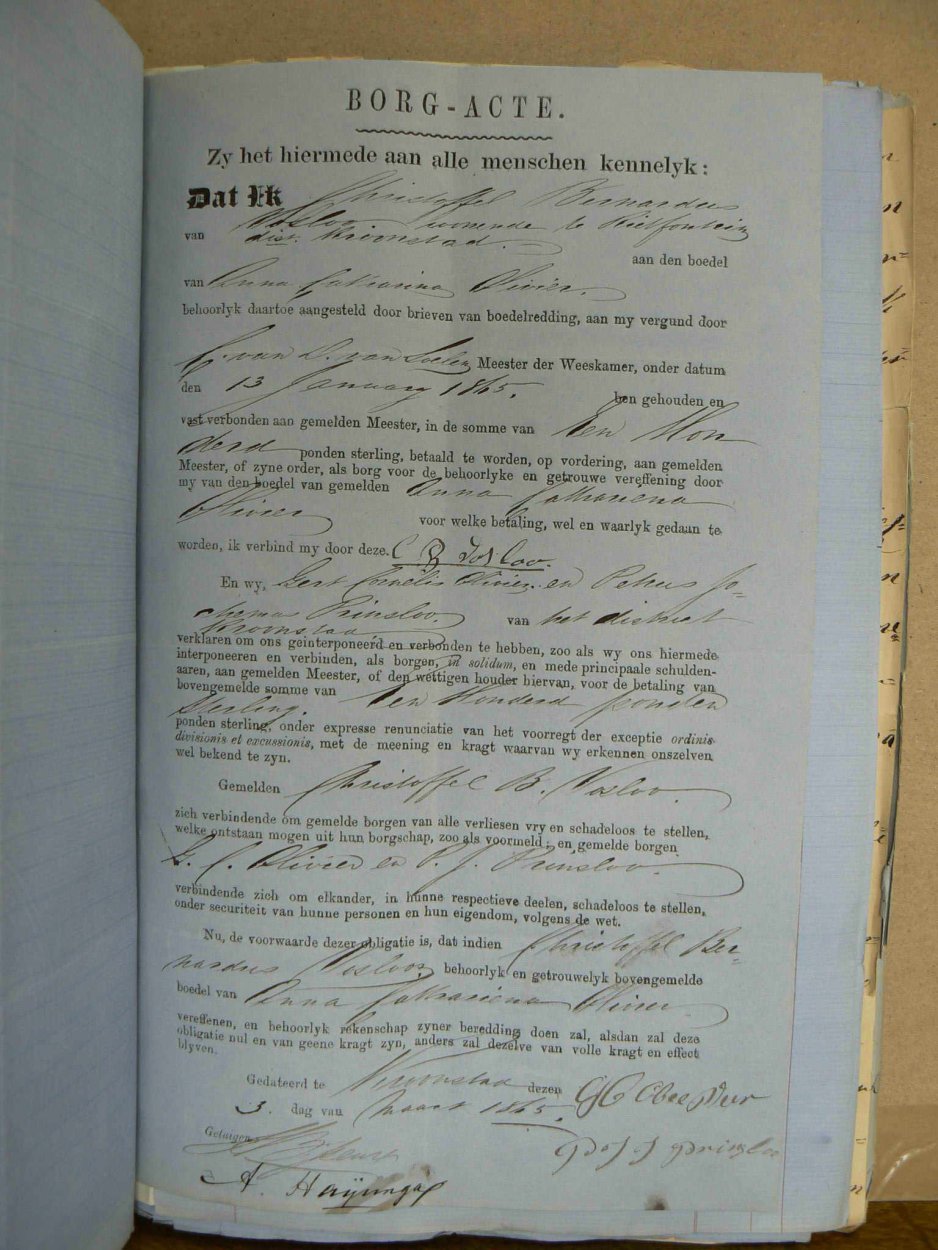 BORG-ACTE.
Zy het hiermede aan alle menschen kennelyk:
Dat Ik Christoffel Bernardus
Vosloo woonende te Rietfontein
van dist. Kroonstad.
aan den boedel
van Anna Catharina Olivier.
behoorlyk daartoe aangesteld door brieven van boedelredding, aan my vergund door
van Meester der Weeskamer, onder datum
den 13 January 1865. ben gehouden en
vast verbonden aan gemelden Meester, in de somme van Een Hon
derd ponden sterling, betaald te worden, op vordering, aan gemelden
Meester, of zyne order, als borg voor de behoorlyke en getrouwe vereffening door
my van den boedel van gemelden Anna Cathariena
Olivier voor welke betaling, wel en waarlyk gedaan te
worden, ik verbind my door deze. C B Vosloo.
En wy, Gert Cornelis Olivier en Petrus Jo=
chemus Prinsloo. van het district
Kroonstad
verklaren om ons geinterponeerd en verbonden te hebben, zoo als wy ons hiermede
interponeeren en verbinden, als borgen, in solidum, en mede principaale schulden-
aaren, aan gemelden Meester, of den wettigen houder hiervan, voor de betaling van
bovengemelde somme van Een Honderd ponden
Sterling.
ponden sterling, onder expresse renunciatie van het voorregt der exceptie ordinis
divisionis et excussionis, met de meening en kragt waarvan wy erkennen onszelven
wel bekend te zyn.
Gemelden Christoffel B. Vosloo.
zich verbindende om gemelde borgen van alle verliesen vry en schadeloos te stellen,
welke ontstaan mogen uit hun borgschap, zoo als voormeld; en gemelde borgen
G. C. Olivier en P. J. Prinsloo.
verbindende zich om elkander, in hunne respectieve deelen, schadeloos te stellen,
onder securiteit van hunne personen en hun eigendom, volgens de wet.
Nu, de voorwaarde dezer obligatie is, dat indien Christoffel Ber=
nardus Vosloo behoorlyk en getrouwelyk bovengemelde
boedel van Anna Cathariena Olivier.
vereffenen, en behoorlyk rekenschap zyner beredding doen zal, alsdan zal deze
obligatie nul en van geene kragt zyn, anders zal dezelve van volle kragt en effect
blyven.
Gedateerd te Kroonstad dezen G C Olivier
3. dag van Maart 1865. P J Prinsloo
Getuigen
A.